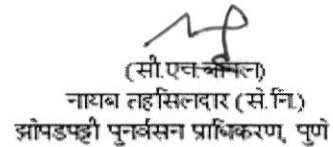 (सी.एन.
नायब तहसिलदार (से.नि.)
झोपडपट्टी पुनर्वसन प्राधिकरण, पुणे